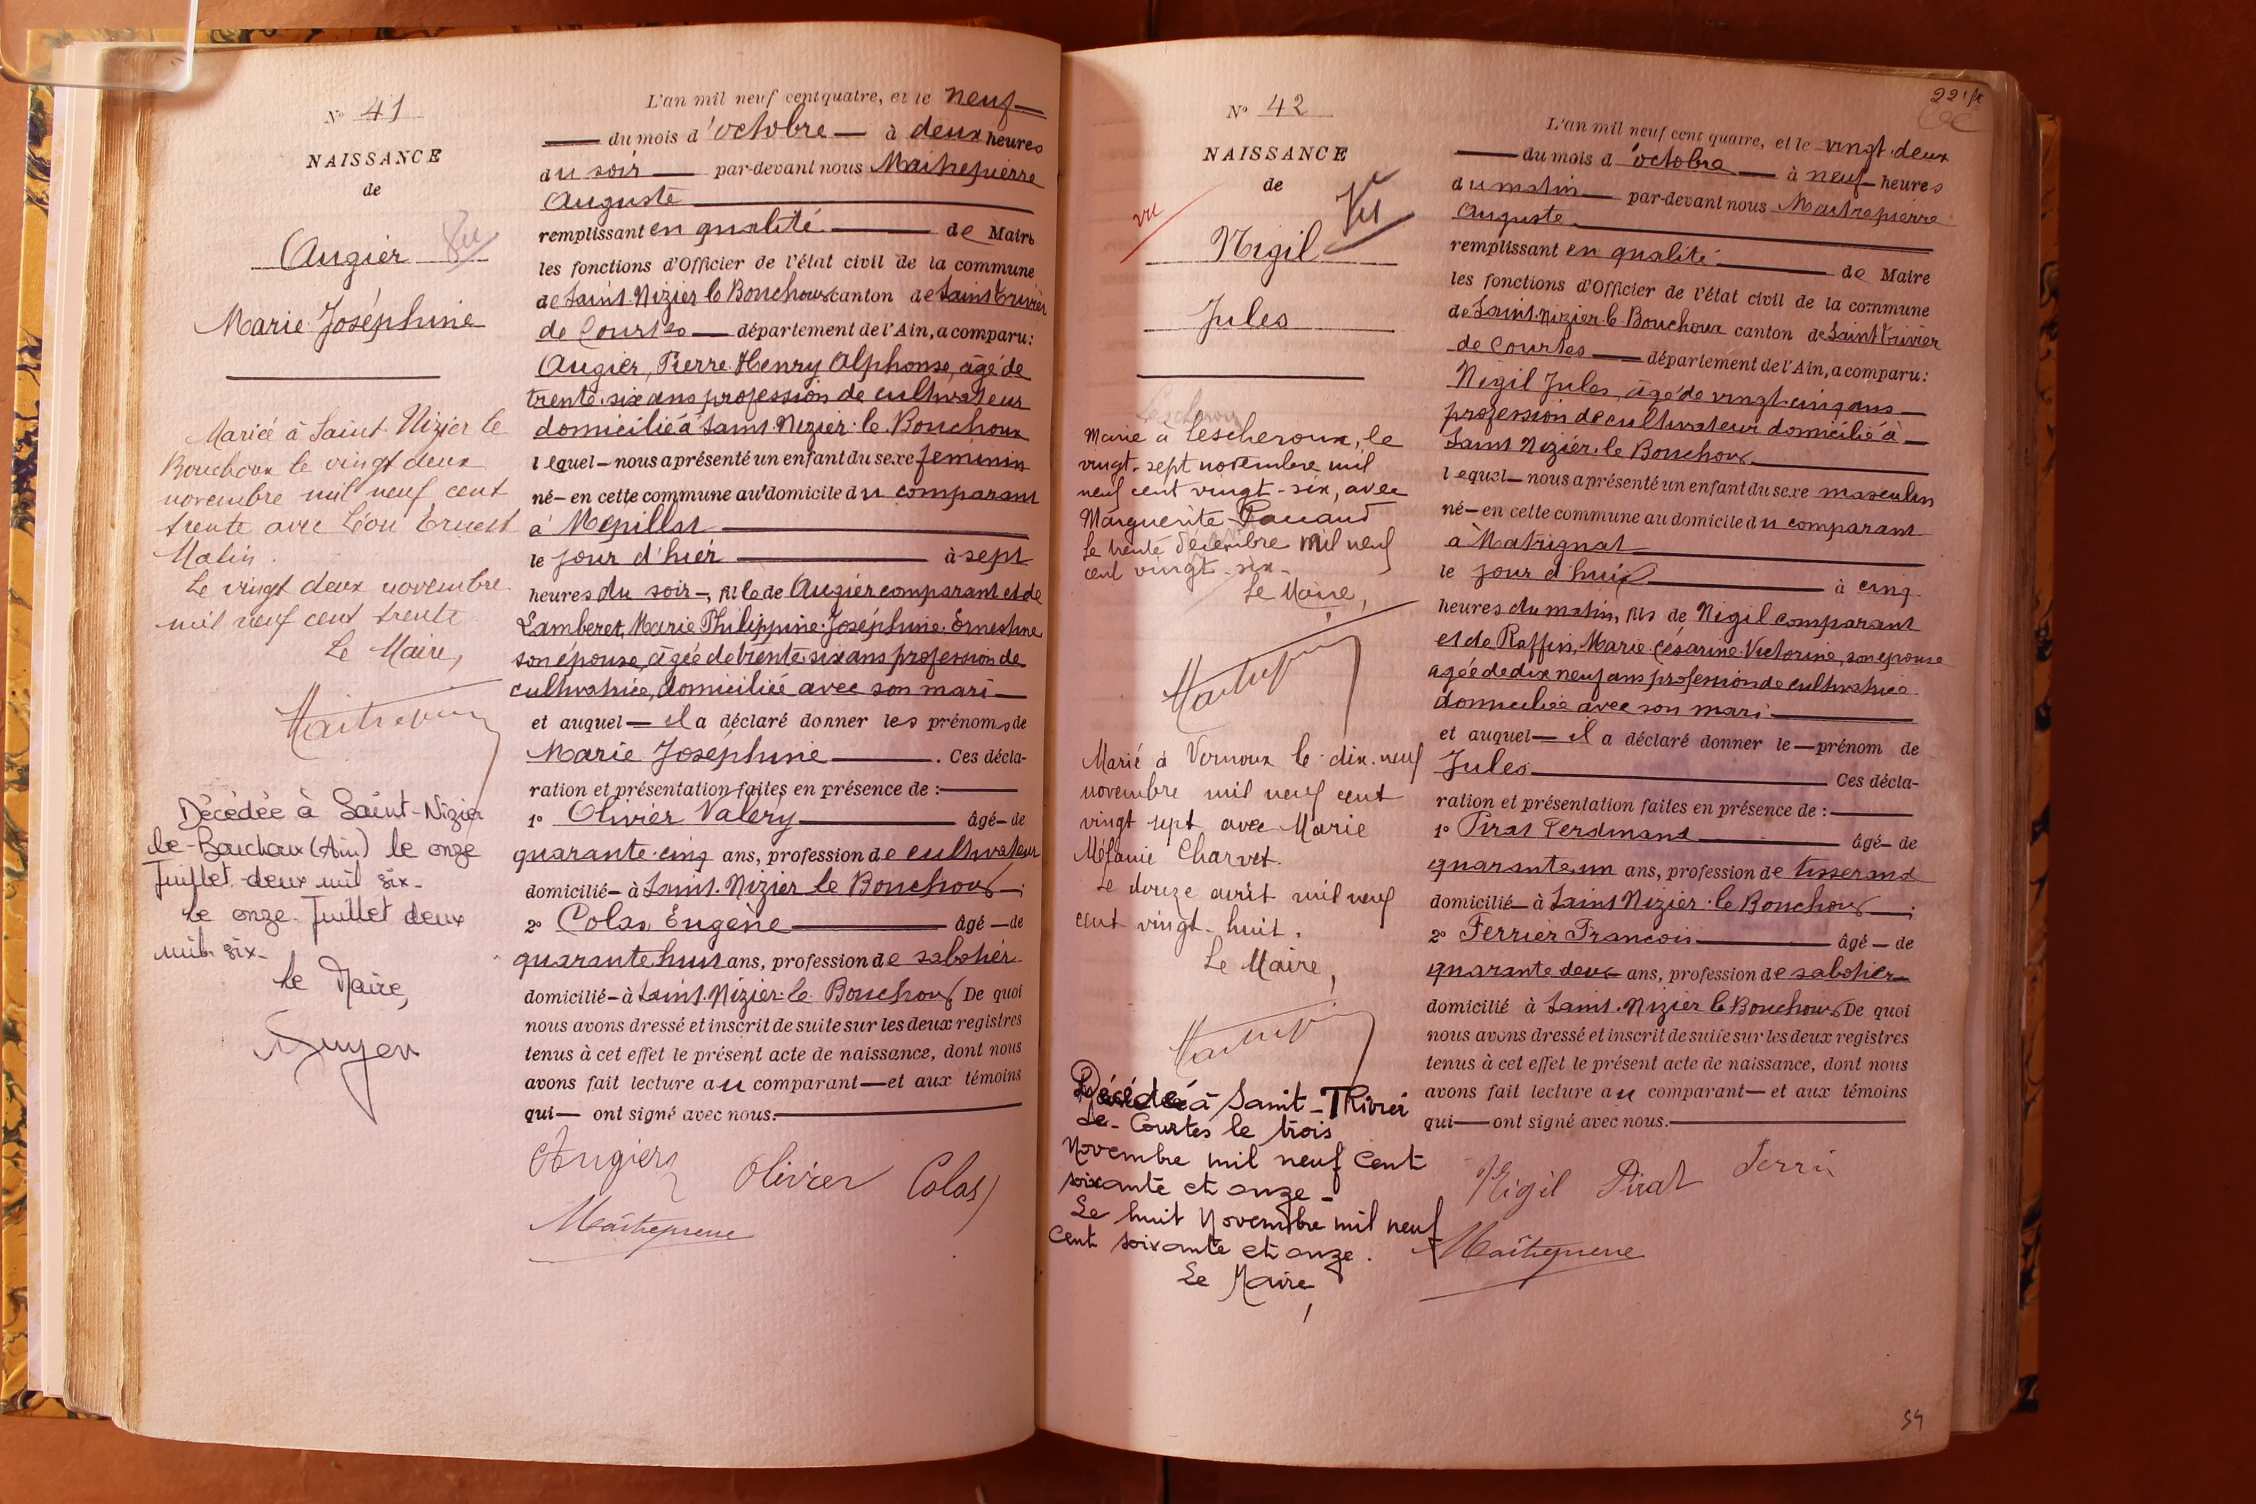 N° 41
NAISSANCE
de
Augier Vu
Marie Joséphine
Mariée à Saint Nizier le
Bouchoux le vingt deux
novembre mil neuf cent
trente avec Léon Ernest
Matin.
Le vingt deux novembre
mil neuf cent trente
Le Maire,
Maitrepierre
Décédée à Saint-Nizier
le-Bouchoux (Ain) le onze
Juillet deux mil six-
Le onze Juillet deux
mil six-
Le Maire,
L'an mil neuf cent quatre, et le neuf
du mois d'octobre à deux heures
du soir par-devant nous Maitrepierre
Auguste
remplissant en qualité de Maire
les fonctions d'Officier de l'état civil de la commune
de Saint-Nizier le Bouchoux canton de Saint Trivier
de Courtes département de l'Ain, a comparu:
Augier, Pierre Henry Alphonse, âgé de
trente-six ans profession de cultivateur
domicilié à Saint-Nizier-le Bouchoux
lequel nous a présenté un enfant du sexe féminin
né en cette commune au domicile du comparant
à Mépillat
le jour d'hier à sept
heures du soir, fille de Augier comparant et de
Lamberet, Marie Philippine Joséphine Ernestine
son épouse, âgée de trente six ans profession de
cultivatrice, domiciliée avec son mari
et auquel il a déclaré donner les prénoms de
Marie Joséphine. Ces décla-
ration et présentation faites en présence de :
1° Olivier Valéry âgé de
quarante-cinq ans, profession de cultivateur
domicilié à Saint-Nizier le Bouchoux;
2° Colas Eugène âgé de
quarante huit ans, profession de sabotier
domicilié à Saint-Nizier-le Bouchoux De quoi
nous avons dressé et inscrit de suite sur les deux registres
tenus à cet effet le présent acte de naissance, dont nous
avons fait lecture au comparant et aux témoins
qui ont signé avec nous.
Augier Olivier Colas
Maitrepierre
22
N° 42
NAISSANCE
de
vu Vu
Nigil
Jules
Marié à Lescheroux, le
vingt-sept novembre mil
neuf cent vingt-six, avec
Marguerite
Le trente décembre mil neuf
cent vingt-six-
Le Maire,
Maitrepierre
Marié à Vernoux le dix-neuf
novembre mil neuf cent
vingt sept avec Marie
Mélanie Charvet.
Le douze avril mil neuf
cent vingt-huit.
Le Maire,
Maitrepierre
Décédé à Saint-Trivier
de-Courtes le trois
Novembre mil neuf cent
soixante et onze-
Le huit Novembre mil neuf
cent soixante et onze.
Le Maire,
L'an mil neuf cent quatre, et le vingt-deux
du mois d'octobre à neuf heures
du matin par-devant nous Maitrepierre
Auguste
remplissant en qualité de Maire
les fonctions d'Officier de l'état civil de la commune
de Saint-Nizier le Bouchoux canton de Saint Trivier
de Courtes département de l'Ain, a comparu:
Nigil Jules, âgé de vingt-cinq ans
profession de cultivateur domicilié à
Saint Nizier-le Bouchoux
lequel nous a présenté un enfant du sexe masculin
né en cette commune au domicile du comparant
à Matrignat
le jour d'hui à cinq
heures du matin, fils de Nigil comparant
et de Raffin, Marie Césarine Victorine, son épouse
agée de dix neuf ans profession de cultivatrice
domiciliée avec son mari
et auquel il a déclaré donner le prénom de
Jules Ces décla-
ration et présentation faites en présence de :
1° Pirat Ferdinand âgé de
quarante un ans, profession de tisserand
domicilié à Saint Nizier-le Bouchoux;
2° Ferrier François âgé de
quarante deux ans, profession de sabotier
domicilié à Saint-Nizier le Bouchoux De quoi
nous avons dressé et inscrit de suite sur les deux registres
tenus à cet effet le présent acte de naissance, dont nous
avons fait lecture au comparant et aux témoins
qui ont signé avec nous.
Nigil Pirat Ferrier
Maitrepierre
54